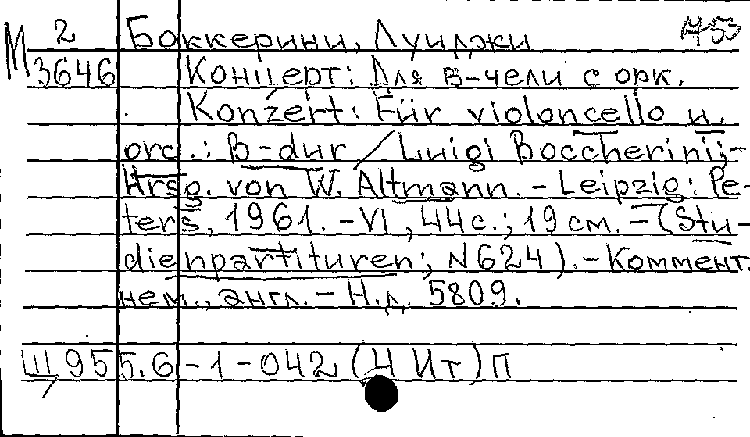 М 2 Боккерини, Луиджи А-53
3646 Концерт: Для в-чели с орк.
Konzert: Für violoncello u.
orc.: B-dur / Luigi Boccherini;
Hrsg. von W. Altmann. - Leipzig: Pe-
ters, 1961. - VI, 44 с.; 19 см. - (Stu-
dienpartituren; N 624). - Коммент.
нем., англ. - Н.д. 5809.
Щ 955.6-1-042 (4 Ит) П